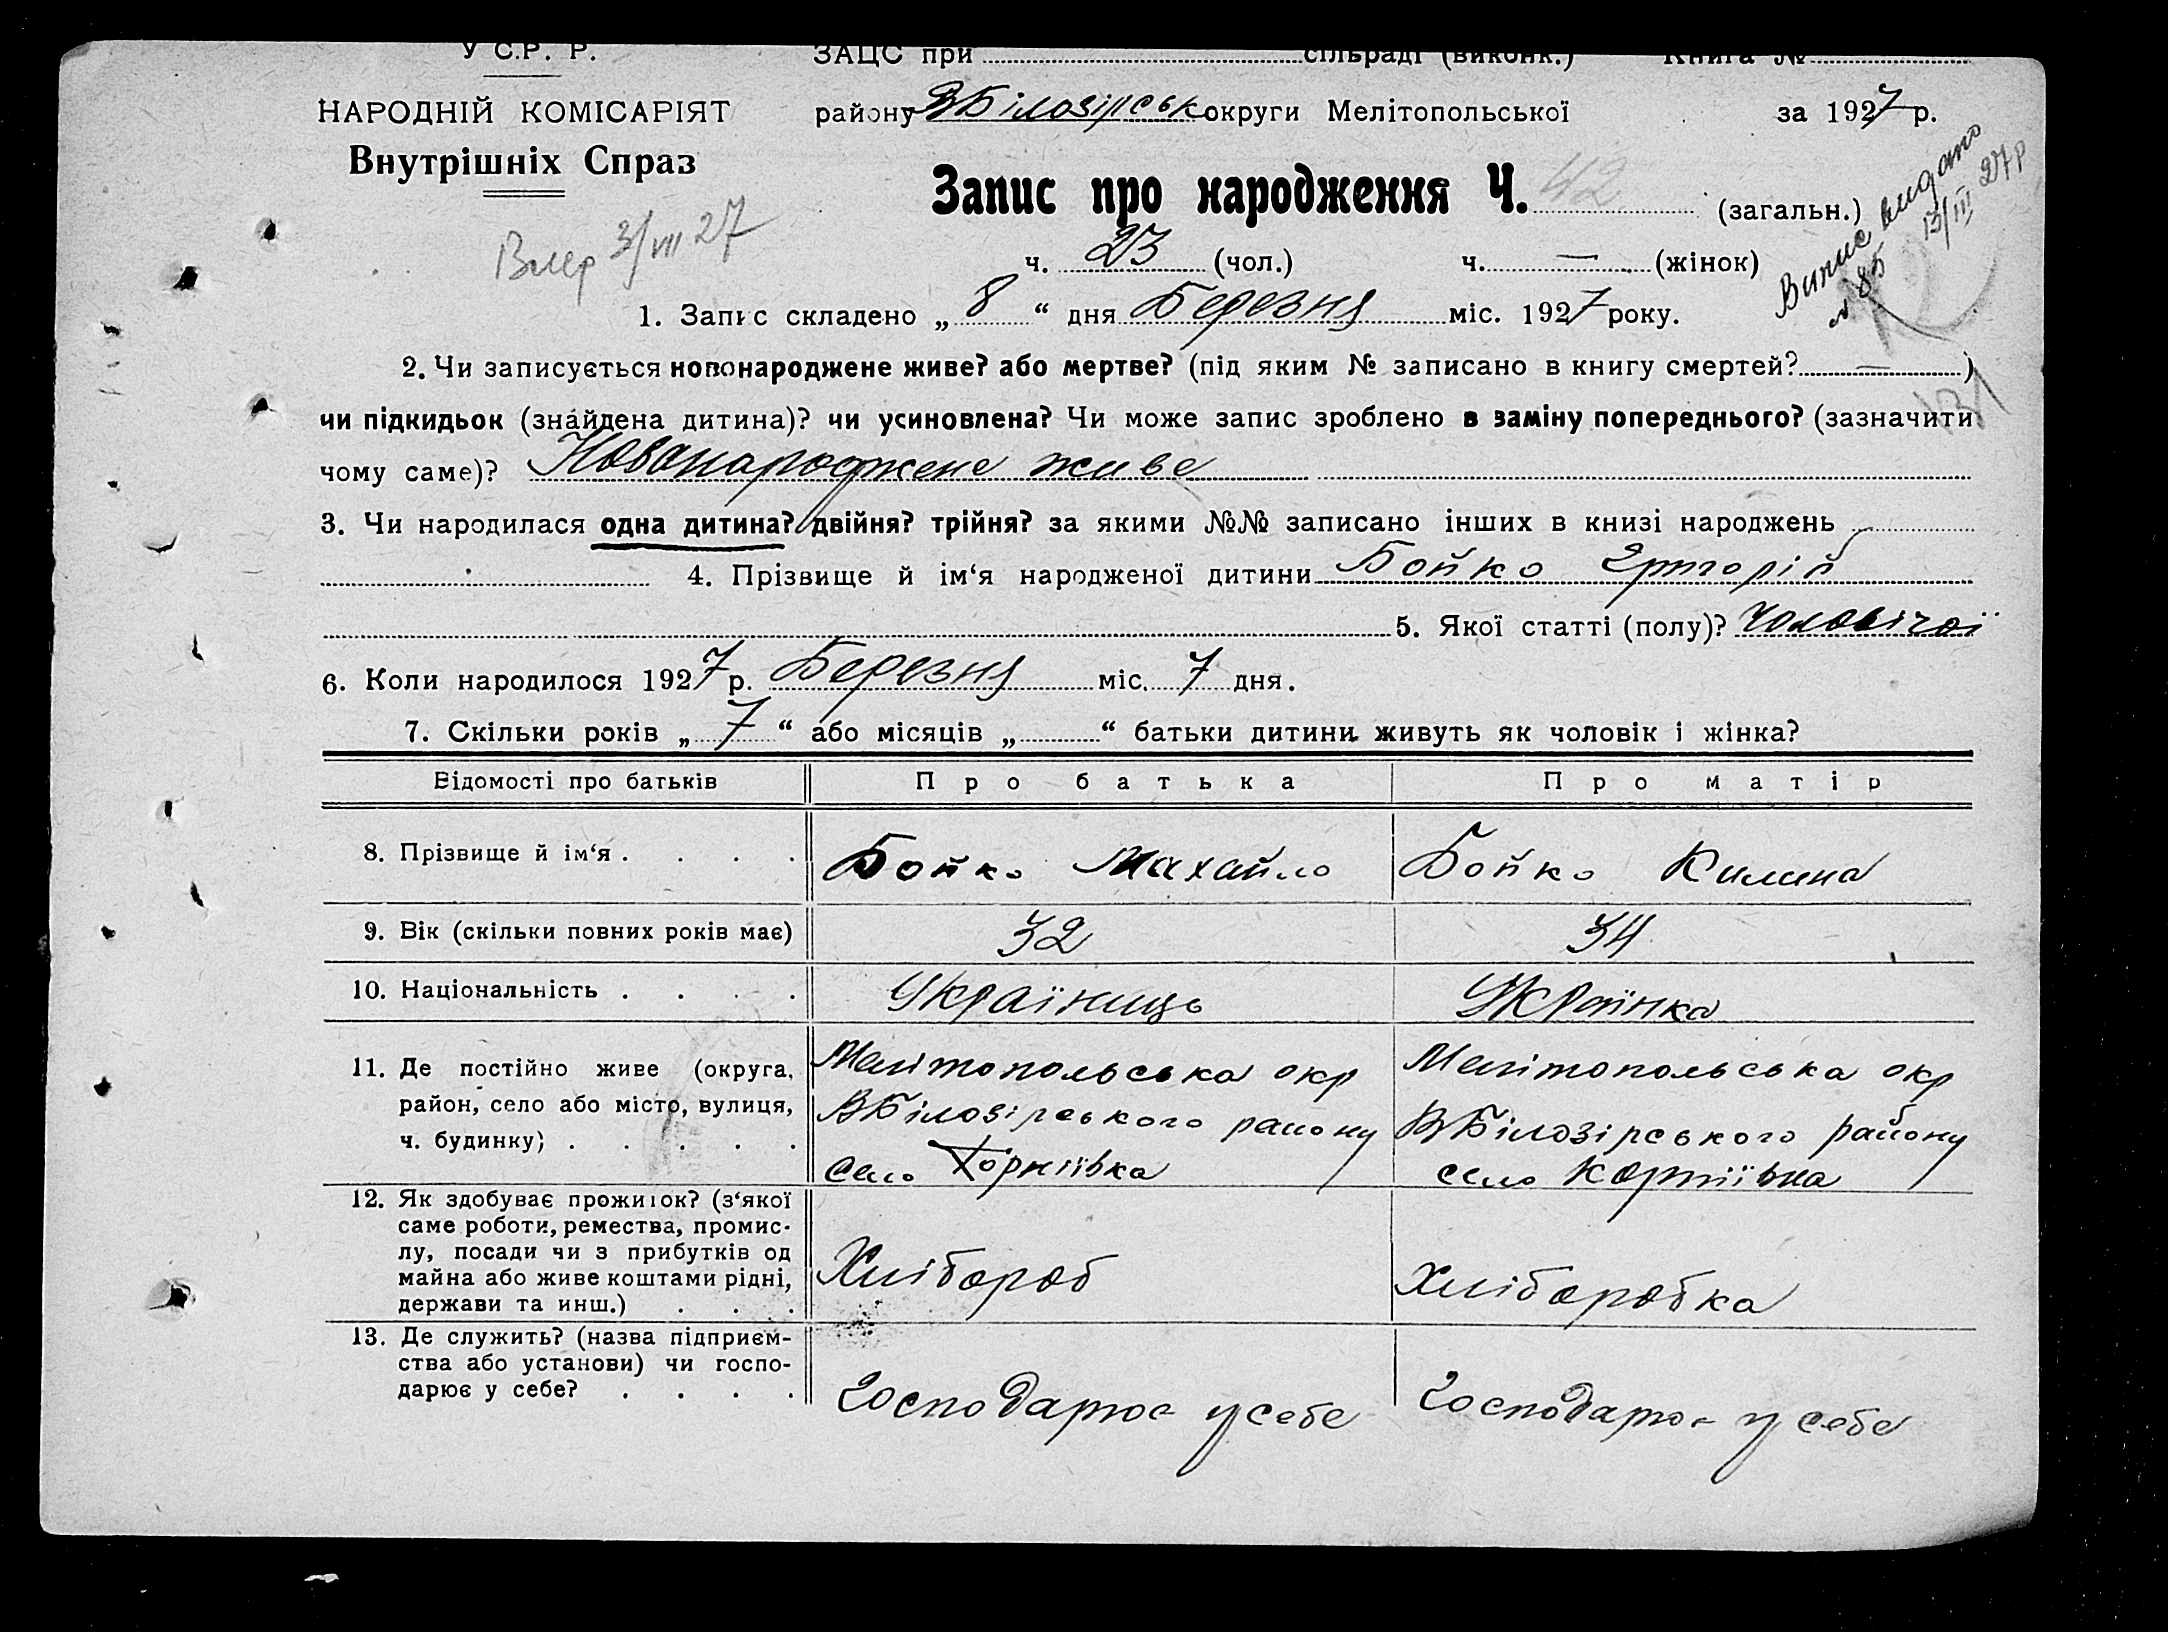 У С.Р. Р. ЗАЦС при сільраді (виконк.) Книга №
НАРОДНІЙ КОМІСАРІЯТ району ВБілозірськ округи Мелітопольської за 1927 р.
Внутрішніх Спраз
Запис про народження Ч. 42 (загальн.)
Випис видано
№ 85 13/III 27р
Вмер 3/VII 27
ч. 23 (чол.) ч. — (жінок)
1. Запис складено „8“ дня Березня міс. 1927 року.
2. Чи записується новонароджене живе? або мертве? (під яким № записано в книгу смертей? — )
131
чи підкидьок (знайдена дитина)? чи усиновлена? Чи може запис зроблено в заміну попереднього? (зазначити
чому саме)? Новонароджене живе
3. Чи народилася одна дитина? двійня? трійня? за якими №№ записано інших в книзі народжень
4. Прізвище й ім‘я народженої дитини Бойко Григорій
5. Якої статті (полу)? Чоловічої
6. Коли народилося 1927 р. Березня міс. 7 дня.
7. Скільки років „7“ або місяців „ “ батьки дитини живуть як чоловік і жінка?
Відомості про батьків Про батька Про матір
8. Прізвище й ім‘я . . . . Бойко Махайло Бойко Килина
9. Вік (скільки повних років має) 32 34
10. Національність . . . . Українець Українка
11. Де постійно живе (округа, Мелітопольська окр Мелітопольська окр
район, село або місто, вулиця, ВБілозірського району ВБілозірського району
ч. будинку) . . . . . село село
12. Як здобуває прожиток? (з‘якої
саме роботи, ремества, промис-
лу, посади чи з прибутків од Хлібороб Хліборобка
майна або живе коштами рідні,
держави та инш.) . . .
13. Де служить? (назва підприєм-
ства або установи) чи госпо-
дарює у себе? . . . . Господарює у себе Господарює у себе